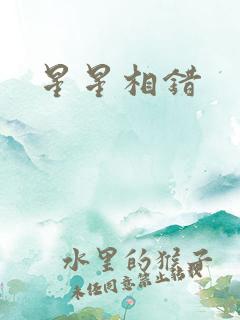 星星相错
水里的猴子
未经同意禁止转载